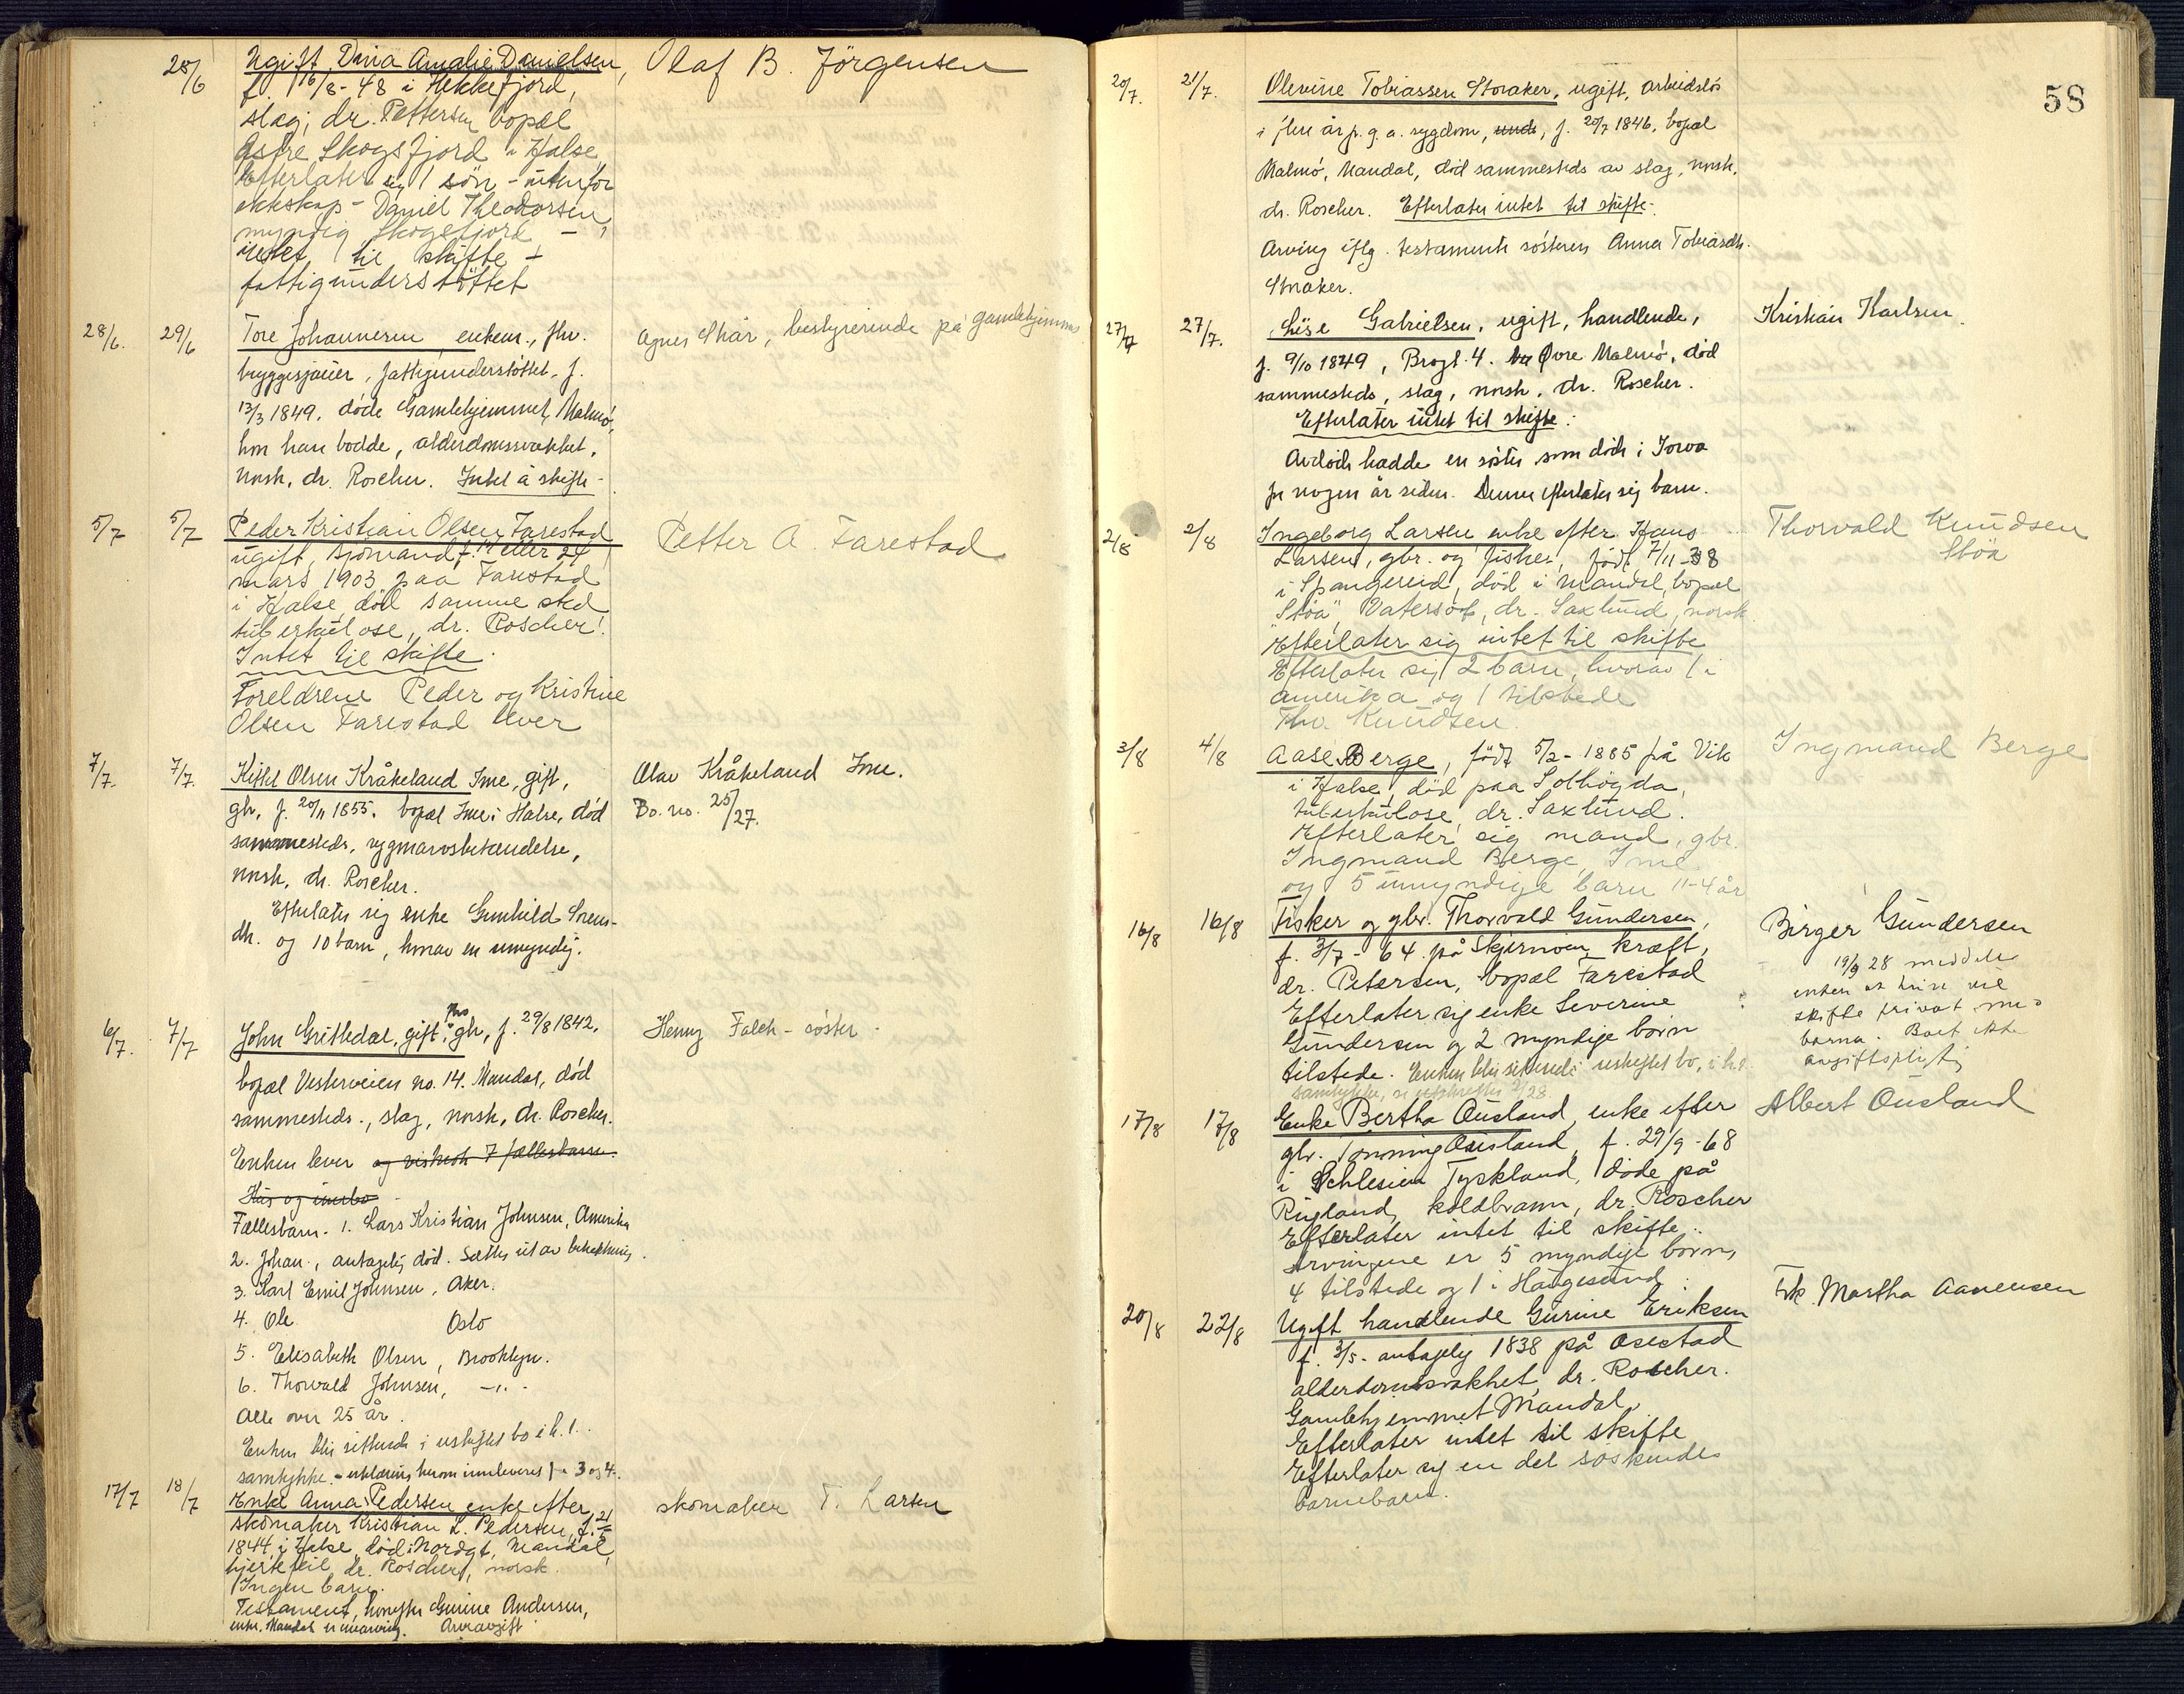 28/6 Ugift Dina Amalie Danielsen, Olaf B. Jörgensen
f. 16/8-48 i Hekkefjord,
slag, dr. Pettersen bopæl
Østre Skogsfjord i Halse
Efterlater sig 1 sön - utenfor
ekteskap - Daniel Theodorsen,
myndig Skogsfjord -
intet til skifte -
fattigunderstöttet
28/6. 29/6 Tore Johannesen enkem., fhv. Agnes Skår, bestyrerinde på gamlehjemmet
bryggesjauer, fattigunderstöttet, f.
13/3 1849. döde Gamlehjemmet, Malmö,
hvor han bodde, alderdomssvakhet,
norsk, dr. Roscher. Intet å skifte.
5/7 5/7 Peder Kristian Olsen Farestad Petter A. Farestad
ugift, sjömand, f. 14 eller 24
mars 1903 paa Farestad
i Halse död samme sted
tuberkulose, dr. Roscher.
Intet til skifte.
Foreldrene Peder og Kristine
Olsen Farestad lever
7/7. 7/7. Kittel Olsen Kråkeland Ime, gift, Olav Kråkeland Ime.
gbr, f. 20/11 1855. bopæl Ime i Halse, död Bo. no. 25/27.
sammesteds, rygmarvsbetændelse,
norsk, dr. Roscher.
Efterlater sig enke Gunhild Sørens-
dtr. og 10 barn, hvorav en umyndig.
6/7. 7/7 John Gritledal, gift, fhv. gbr, f. 29/8 1842, Henny Falch - söster.
bopæl Vesterveien no. 14. Mandal, död
sammesteds., slag, norsk, dr. Roscher.
Enken lever og 7 fællesbarn.
Hus og innbo
Fællesbarn. 1. Lars Kristian Johnsen, Amerika
2. Johan, antagelig död. Sættes ut av betraktning.
3. Karl Emil Johnsen, Aker.
4. Ole Oslo
5. Elisabeth Olsen, Brooklyn.
6. Thorvald Johnsen, -"-
Alle over 25 år.
Enken blir sittende i uskiftet bo i h. t.
samtykke. - erklæring herom innleveres fra 3 og 4.
17/7 18/7 Enke Anna Pedersen enke efter skomaker T. Larsen
skomaker Kristian L. Pedersen, f. 21/5
1844 i Halse, död i Nordgt, Mandal,
hjertefeil, dr. Roscher, norsk.
Ingen barn.
Testament, hvorefter Gurine Andersen,
enke, Mandal er enearving. Arveavgift
58
20/7. 21/7. Olevine Tobiassen Storaker, ugift, arbeidslös
i flere år p. g. a. sygdom, f. 20/7 1846, bopæl
Malmö, Mandal, död sammesteds av slag, norsk,
dr. Roscher. Efterlater intet til skifte.
Arving iflg. testamente sösteren Anna Tobiasdtr.
Storaker.
27/7 27/7. Lise Gabrielsen, ugift, handlende, Kristian Karlsen.
f. 9/10 1849, Brogt. 4. Övre Malmö, död
sammesteds, slag, norsk, dr. Roscher.
Efterlater intet til skifte.
Avdöde hadde en söster som döde i Iowa
for nogen år siden. Denne efterlater sig barn.
2/8 2/8 Ingeborg Larsen enke efter Hans Thorvald Knudsen
Larsen, gbr. og fisker, född 7/11-38 Stöa
i Spangereid, död i Mandal, bopæl
"Stöa", Vatersot, dr. Saxlund, norsk
Efterlater sig intet til skifte
Efterlater sig 2 barn, hvorav 1 i
Amerika og 1 tilstede
Tho. Knudsen.
3/8 4/8 Aase Berge, född 5/2-1885 på Vik Ingmand Berge
i Halse, död paa Solhögda,
tuberkulose, dr. Saxlund.
Efterlater sig mand, gbr.
Ingmand Berge, Ime
og 5 umyndige barn 11-4 år
16/8 16/8 Fisker og gbr. Thorvald Gundersen, Birger Gundersen
f. 3/7-64 på Skjernöen, kræft, 19/9 28 meddeler
dr. Petersen, bopæl Farestad enken at hun vil
Efterlater sig enke Severine skifte privat med
Gundersen og 2 myndige börn barna. Boet ikke
tilstede. Enken blir sittende i uskiftet bo, i h.t. avgiftspligtig
samtykke,
17/8 17/8 Enke Bertha Ousland, enke efter Albert Ousland
gbr. Tönning Ousland, f. 29/9-68
i Schlesien Tyskland, döde på
Risland, koldbrann, dr. Roscher
Efterlater intet til skifte.
Arvingene er 5 myndige börn,
4 tilstede og 1 i Haugesund.
20/8 22/8 Ugift handlende Gurine Eriksen Frk. Martha Aanensen
f. 3/5- antagelig 1838 på Osestad
alderdomssvakhet, dr. Roscher.
Gamlehjemmet Mandal,
Efterlater intet til skifte
Efterlater sig en del söskendes
barnebarn.